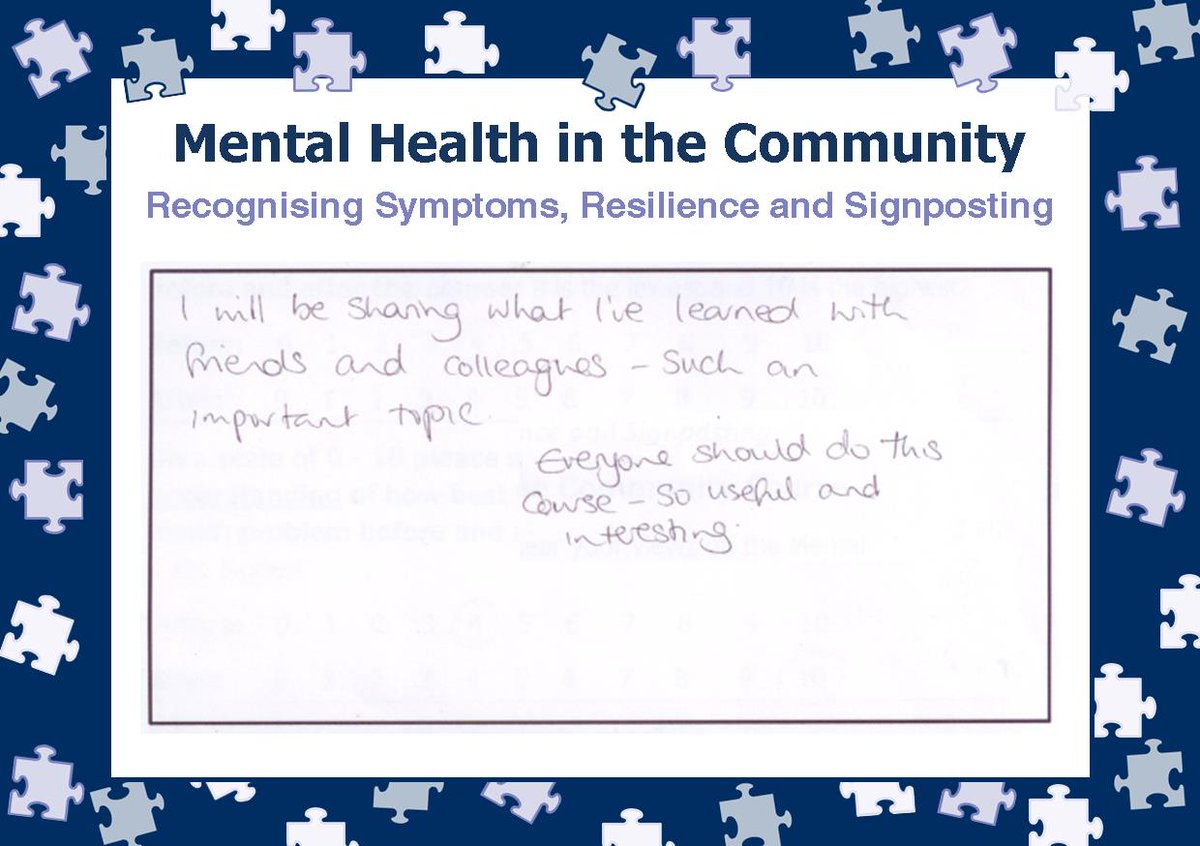 Mental Health in the Community
Recognising Symptoms, Resilience and Signposting
I will be sharing what I've learned with
friends and colleagues – such an
important topic.
Everyone should do this
course – so useful and
interesting.